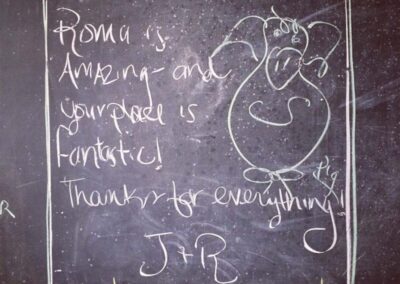 Roma is
Amazing - and
your place is
fantastic!
Thanks for everything!
J + R